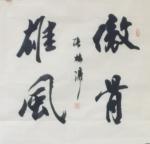 傲骨
雄風